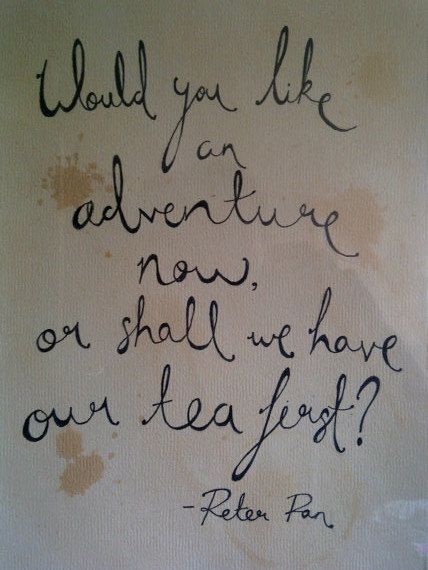 Would you like
an
adventure
now,
or shall we have
our tea first?
-Peter Pan